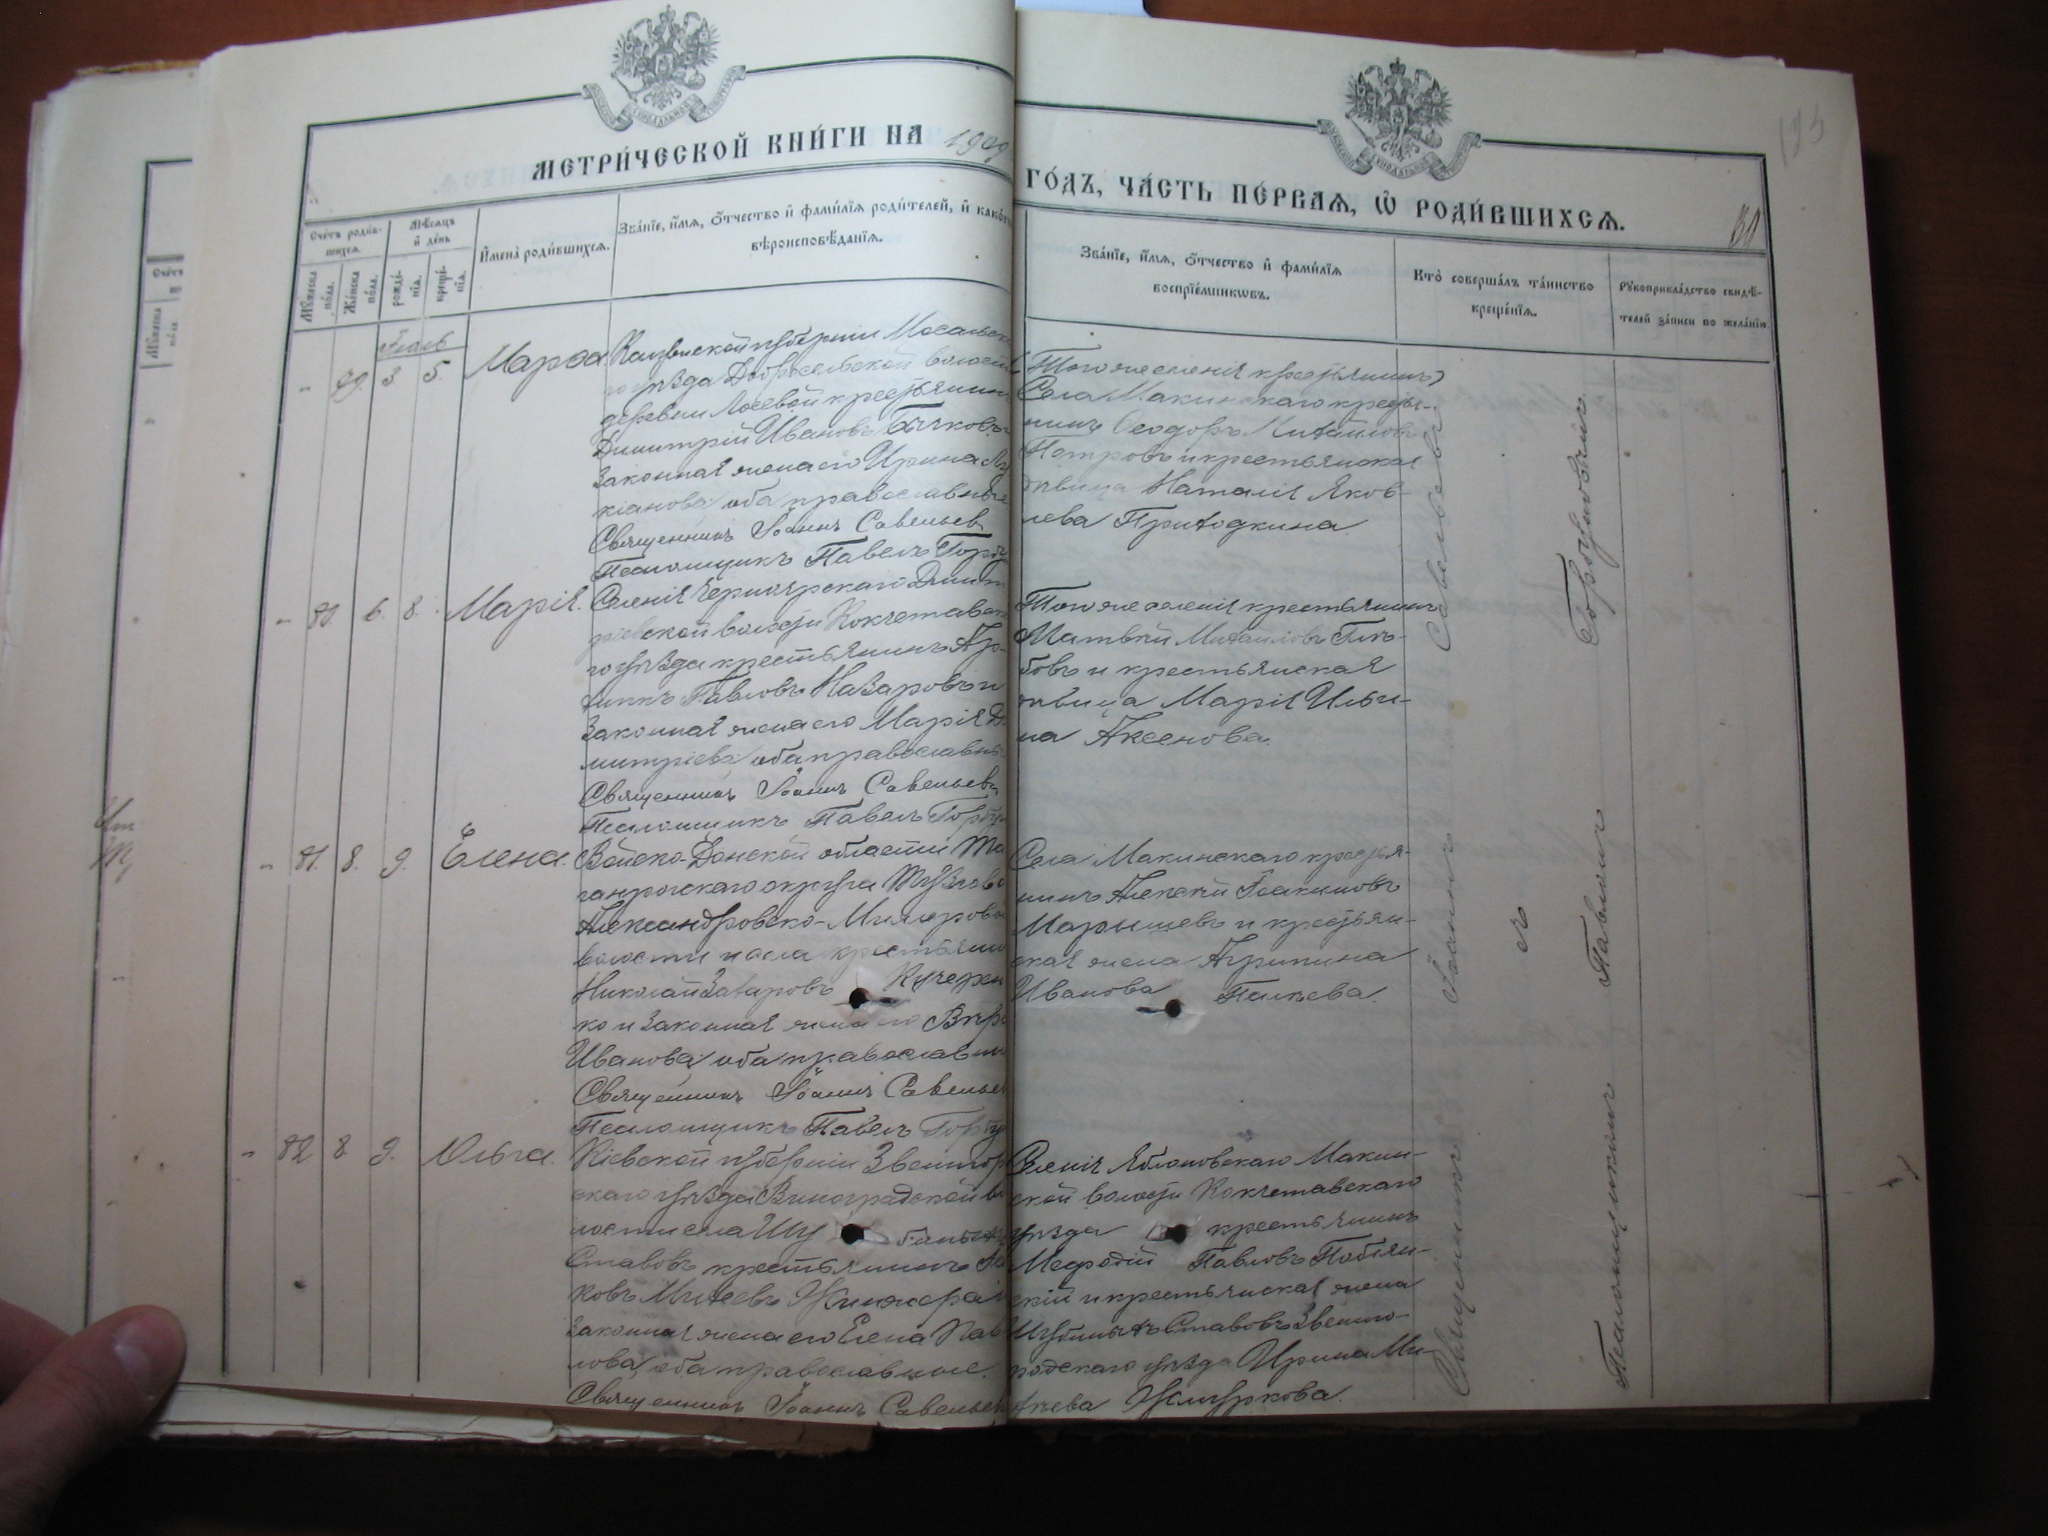 МЕТРИ́ЧЕСКОЙ КНИ́ГИ НА 1909
ГО́ДЪ, ЧА́СТЬ ПЕ́РВАЯ, Ѡ҆ РОДИ́ВШИХСЯ.
Сче́тъ роди́в-
шихся.
Му́жеска по́ла.
Же́нска по́ла.
Мѣ́сяцъ
и де́нь
рожде́-
нїя.
креще́-
нїя.
И҆мена̀ роди́вшихся.
Зва́нїе, и҆́мя, о҆́тчество и҆ фами́лїя роди́телей, и҆ како́го
вѣроисповѣ́данїя.
Зва́нїе, и҆́мя, о҆́тчество и҆ фами́лїя
воспрїе́мниковъ.
Кто̀ соверша́лъ та́инство
креще́нїя.
Рукоприкла́дство свидѣ́-
телей за́писи по жела́нїю.
3. 5.
Марѳа.
Калужской губерніи Мосальска
го уѣзда Добросельской волости
деревни Лосевой крестьянин
Димитрій Ивановъ Бычковъ
законная жена его Ирина Лу
кіанова, оба православные
Священникъ Іоаннъ Савельев
Псаломщикъ Павелъ Горбу
Того же селенія крестьянинъ)
Села Макинскаго кресть-
нинъ Ѳеодоръ Михаиловъ
Петровъ и крестьянская
дѣвица Наталія Яков-
лева Приходкина.
- 80. 6. 8. Марія.
Селенія Черноярскаго Дмит
ріевской волости Кокчетавск
го уѣзда крестьянинъ Ар-
хипъ Павловъ Назаровъ и
законная жена его Марія Ди
митріева, оба православны
Священникъ Іоаннъ Савельевъ
Псаломщикъ Павелъ Горбу
Того же селенія крестьянинъ
Матвѣй Михаиловъ Глѣ-
бовъ и крестьянская
дѣвица Марія Ильи-
на Аксенова.
- 81. 8. 9. Елена.
Войско-Донской области Та
ганрогскаго округа
Александровско-
волости и села крестьянин
Николай Захаровъ Кучерен
ко и законная жена его Вѣра
Иванова, оба православны
Священникъ Іоаннъ Савельев
Псаломщикъ Павелъ Горбу
Села Макинскаго крестья-
нинъ Алексѣй Іоакимовъ
Марышевъ и крестьян-
ская жена Агрипина
Иванова
- 82 8. 9. Ольга.
Кіевской губерніи Звенигор
скаго уѣзда Виноградской во
лости села Шу
Ставовъ крестьянинъ Я
ковъ Михеевъ
законная жена его Елена Пав
лова, оба православные.
Священникъ Іоаннъ Савельев
Селенія Яблоновскаго Макин-
ской волости Кокчетавскаго
уѣзда крестьянинъ
Меѳодій Павловъ
скій и крестьянская жена
Ставовъ Звениго-
родскаго уѣзда Ирина Ми-
хѣева Жмуркова.
Священникъ Іоаннъ Савельевъ
съ
Псаломщикомъ Павломъ Горбуновымъ